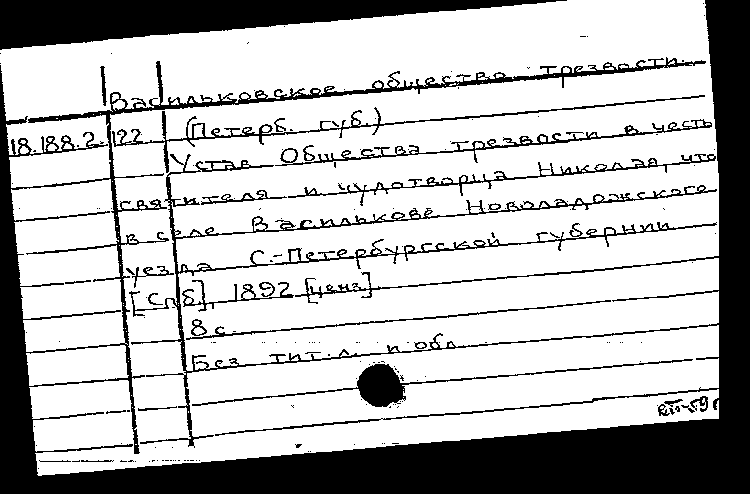 Васильковское общество трезвости.
18.188.2.122 (Петерб. губ.)
Устав Общества трезвости в честь
святителя и чудотворца Николая, что
в селе Василькове Новоладожского
уезда С.-Петербургской губернии
[Спб], 1892 [ценз].
8 с.
Без тит. л. и обл.